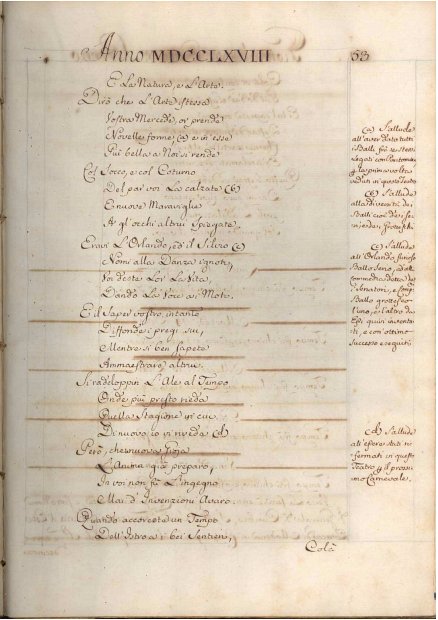 Anno MDCCLXVIII 53
E La Natura, e L'Arte.
Dirò che L'Arte istessa
Vostra Mercede, or prende
Novelle forme, (a) e in essa
Più bella a Noi si rende
Col Socco, e col Coturno
Del par voi La calzate (b)
E nuove Maraviglie
A gl'occhi altrui spiegate.
Eravi L'Orlando, ed il Silvio (c)
Nomi alla Danza ignoti,
Voi deste Lor La Vita
Dando La voce ai Moti.
E il saper vostro, intanto
Diffonde i pregi sui,
Mentre si ben sapete
Ammaestrare altrui.
Si raddoppin L'Ale al Tempo
Onde più presto rieda
Quella Stagione in cui
Di nuovo io vi riveda (d)
Però, che nuova
L'Anima già preparo,
In voi non fù L'ingegno
Mai d'Invenzioni Avaro.
Quando accorcata un Tempo
Dell'Istro a i bei Sentieri,
Colà
(a) S'allude
all'aver data tutti
i Balli
legati con Pantomimo
La prima volta
veduti in questo Teatro
(b) S'allude
alla diversità de
Balli cioè de' se-
rj, ed a Grotteschi
(c) S'allude
all'Orlando furioso
Ballo serio, ed alla
commedia
i Senatori, e
Ballo grottesco
l'uno, e l'altro da
Essi quivi inventa-
ti, e con ottimo
successo eseguiti
(d) S'allude
ad essere stati ri-
fermati in questo
Teatro p il prossi-
mo Carnevale.